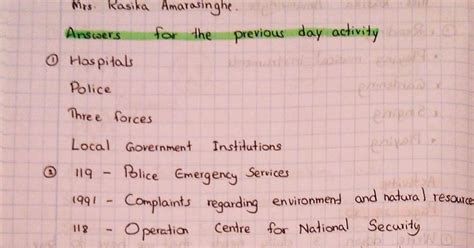 Mrs. Kasika Amarasinghe.
Answers for the previous day activity
① Haspitals
Police
Three forces
Local Government Institutions
② 119 - Police Emergency Services
1991 - Complaints regarding environment and natural resource
118 - Operation Centre for National Security